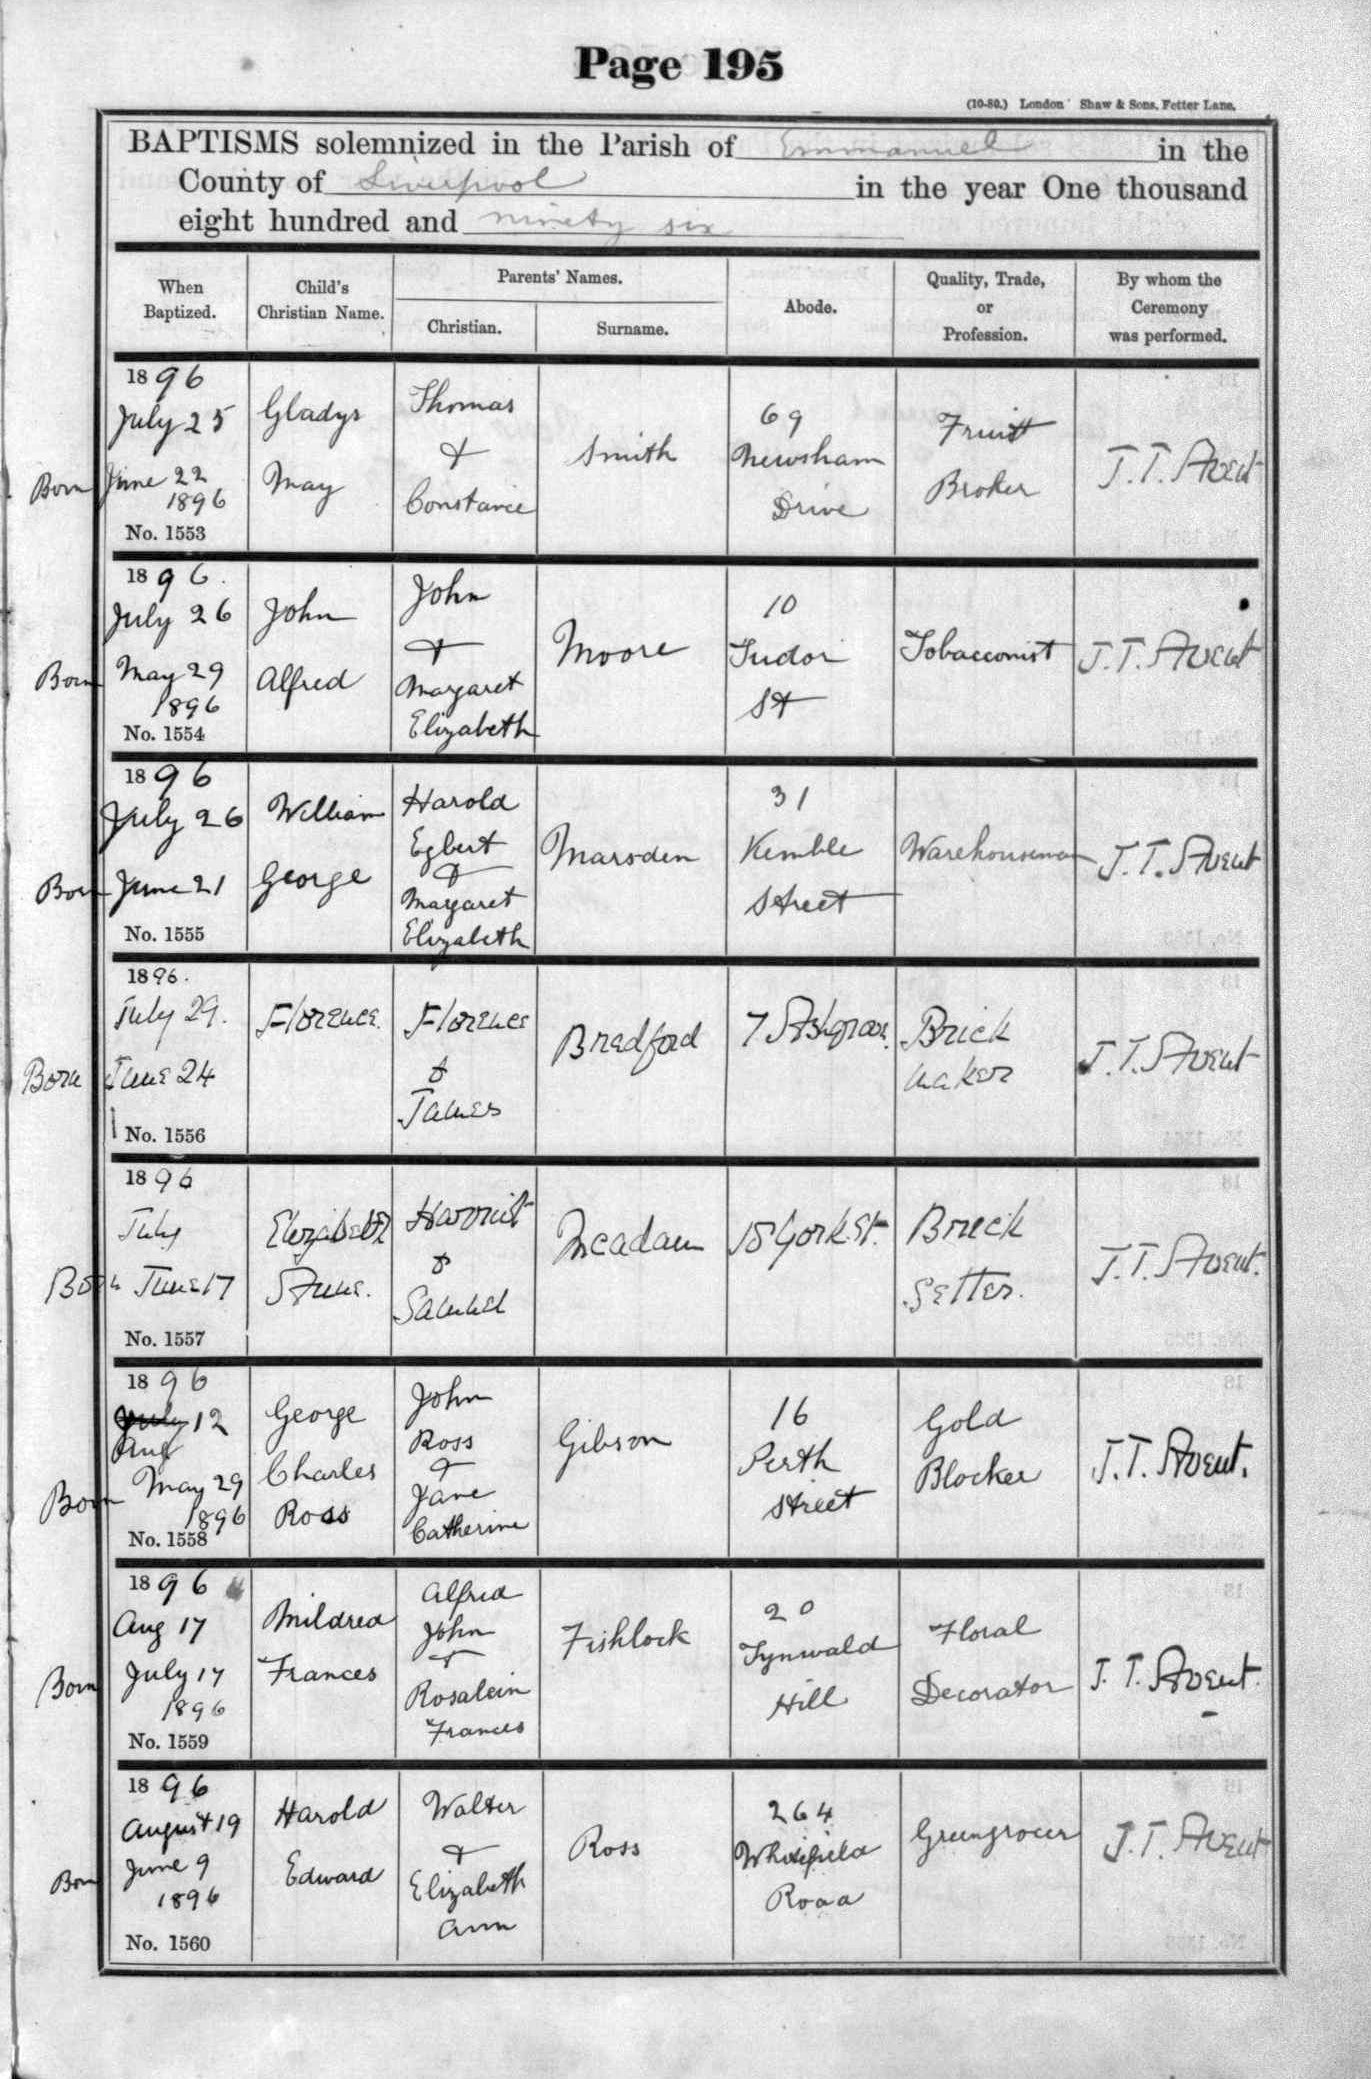 Page 195
(10-80.) London Shaw & Sons, Fetter Lane.
BAPTISMS solemnized in the Parish of Emmanuel in the
County of Liverpool in the year One thousand
eight hundred and ninety six
When
Baptized.
Child's
Christian Name.
Parents' Names.
Christian.
Surname.
Abode.
Quality, Trade,
or
Profession.
By whom the
Ceremony
was performed.
1896
July 25
Born June 22
1896
No. 1553
Gladys
May
Thomas
&
Constance
Smith
69
Newsham
Drive
Fruit
Broker
J. T. Avent
1896.
July 26
Born May 29
1896
No. 1554
John
Alfred
John
&
Margaret
Elizabeth
Moore
10
Tudor
St
Tobacconist
J. T. Avent
1896
July 26
Born June 21
No. 1555
William
George
Harold
Egbert
&
Margaret
Elizabeth
Marsden
31
Kemble
Street
Warehouseman
J. T. Avent
1896.
July 29.
Born June 24
No. 1556
Florence.
Florence
&
James
Bradford
7 Ashgrove.
Brick
maker
J. T. Avent
1896
July
Born June 17
No. 1557
Elizabeth
Harriet
&
Samuel
McAdam
18 York St.
Brick
Setter.
J. T. Avent.
1896
July 12
Aug
Born May 29
1896
No. 1558
George
Charles
Ross
John
Ross
&
Jane
Catherine
Gibson
16
Perth
Street
Gold
Blocker
J. T. Avent.
1896
Aug 17
Born July 17
1896
No. 1559
Mildred
Frances
Alfred
John
&
Rosalein
Frances
Fishlock
20
Tynwald
Hill
Floral
Decorator
J. T. Avent.
1896
August 19
Born June 9
1896
No. 1560
Harold
Edward
Walter
&
Elizabeth
Ann
Ross
264
Whitefield
Road
Greengrocer
J. T. Avent